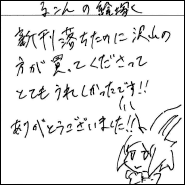 るこんの絵描く
新刊落ちたのに沢山の
方が買ってくださって
とてもうれしかったです!!
ありがとうございました!!